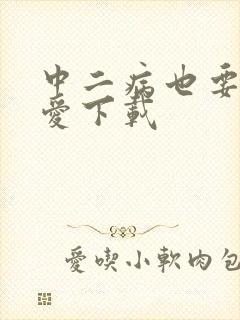 中二病也要
愛下載
愛喫小軟肉包